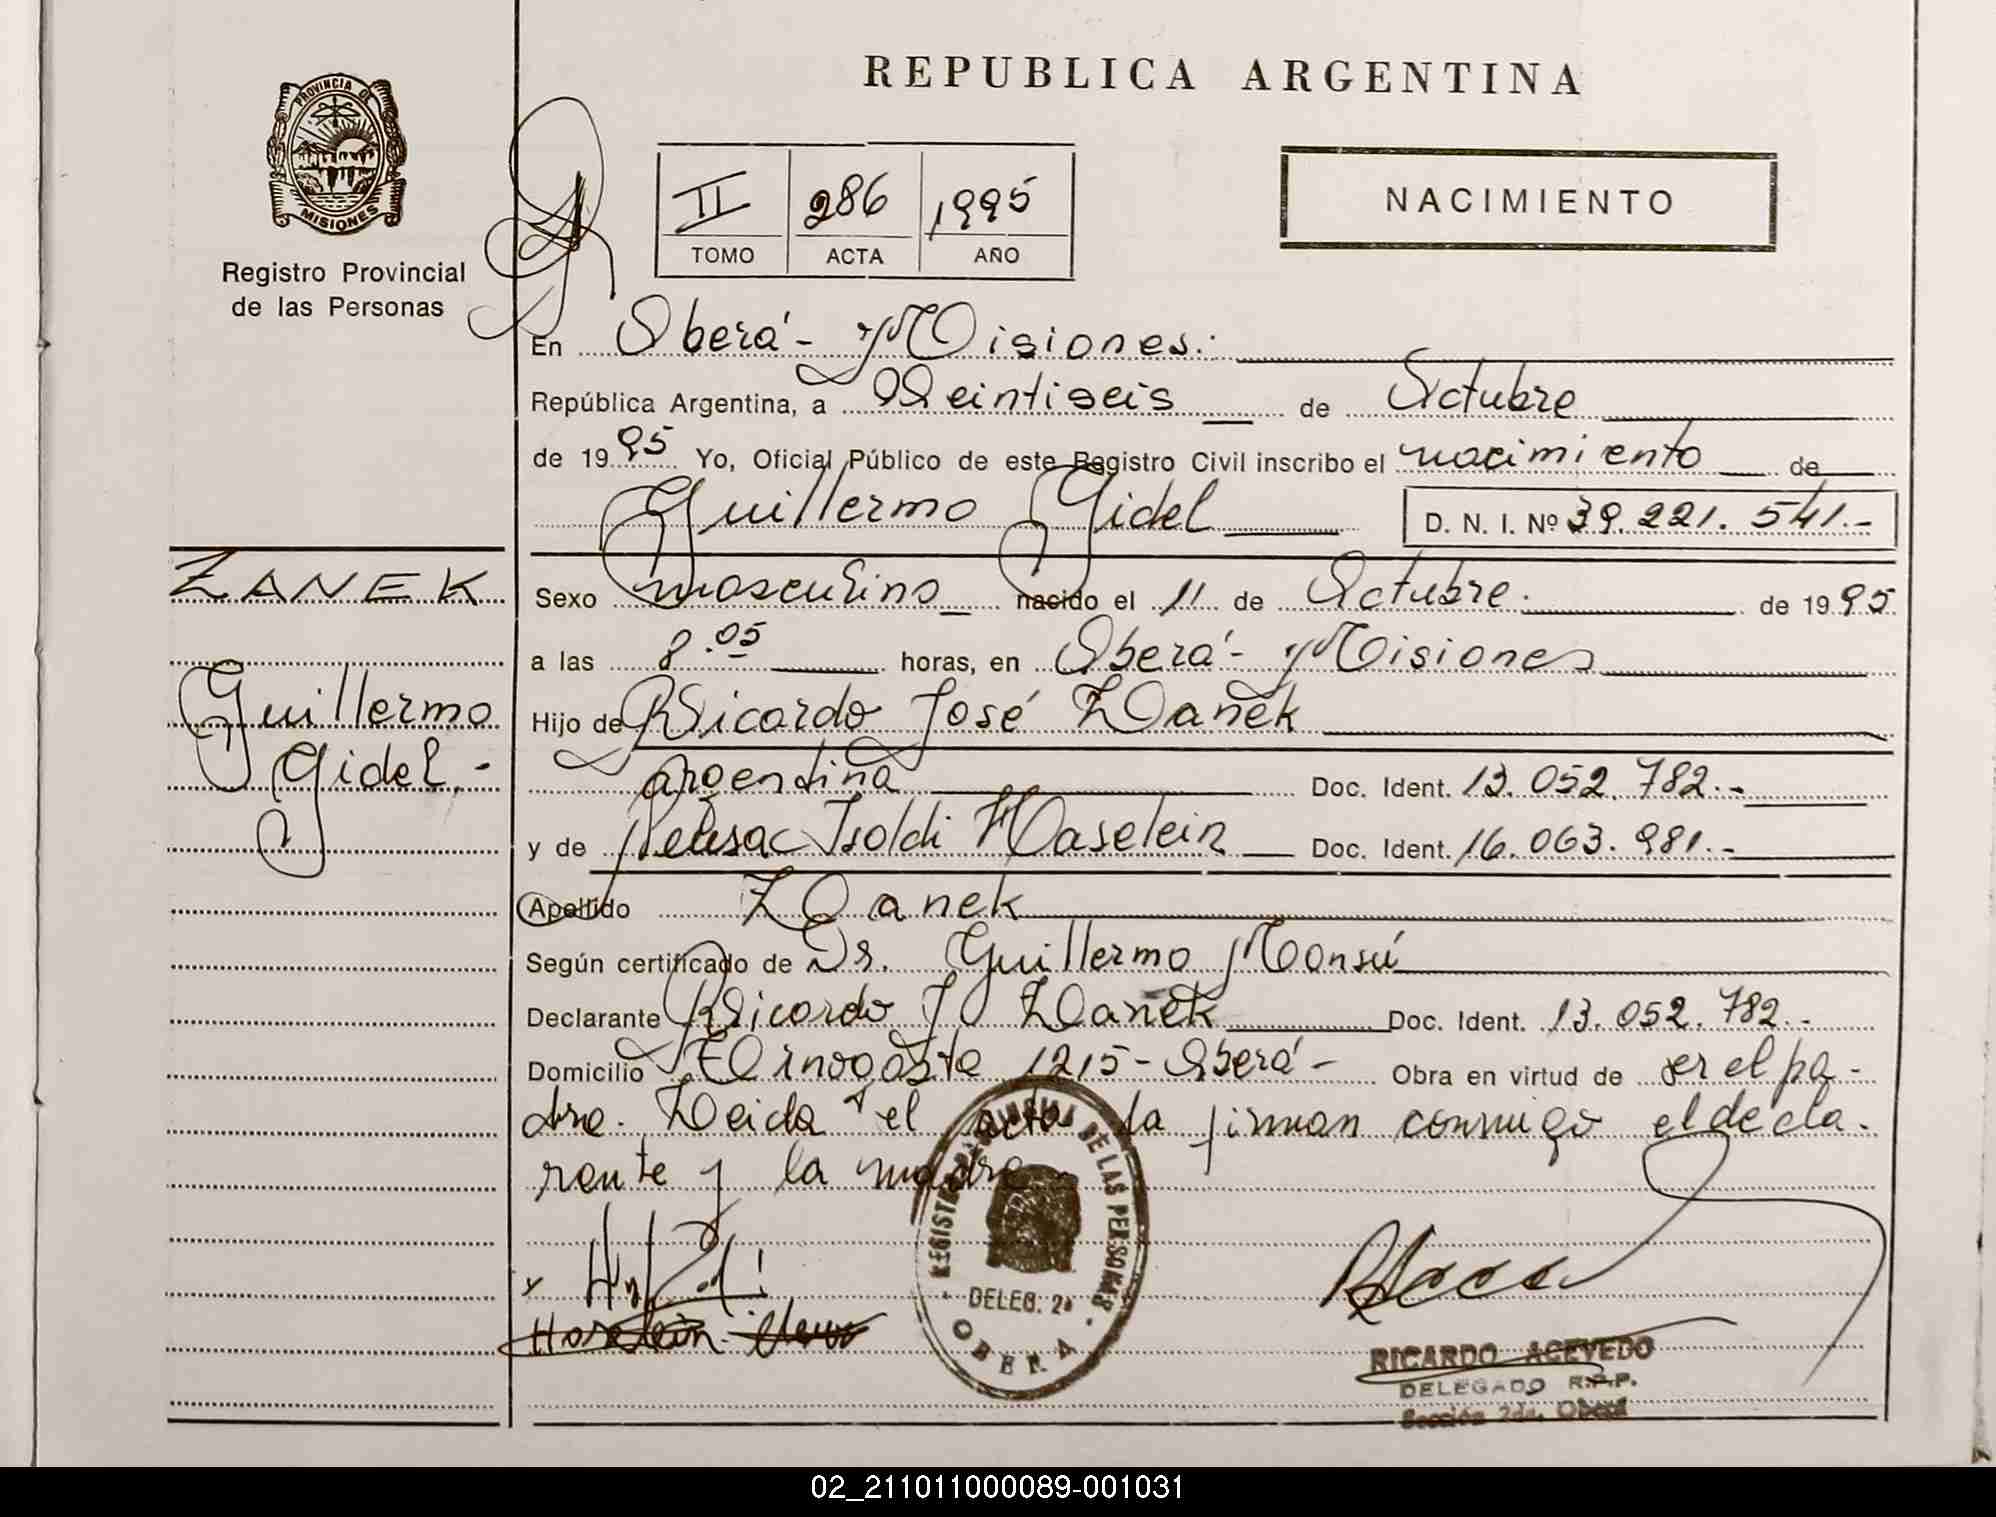 REPUBLICA ARGENTINA
PROVINCIA DE
MISIONES
Registro Provincial
de las Personas
II 286 1995
TOMO ACTA AÑO
NACIMIENTO
En Oberá - Misiones.
República Argentina, a Veintiseis de Octubre
de 1995 Yo, Oficial Público de este Registro Civil inscribo el nacimiento de
Guillermo Gidel D. N. I. Nº 39.221.541.-
ZANEK
Guillermo
Gidel.-
Sexo masculino nacido el 11 de Octubre. de 1995
a las 8.05 horas, en Oberá - Misiones
Hijo de Ricardo José Zanek
argentina Doc. Ident. 13.052.782.-
y de Isoldi Haselein Doc. Ident. 16.063.981.-
Apellido Zanek
Según certificado de Dr. Guillermo Monsú
Declarante Ricardo J Zanek Doc. Ident. 13.052.782.-
Domicilio 1215 - Oberá - Obra en virtud de ser el pa-
dre. Leida el acta la firman conmigo el decla-
rante y la madre
REGISTRO PROVINCIAL DE LAS PERSONAS
DELEG. 2ª
OBERA
Haselein
RICARDO ACEVEDO
DELEGADO R.P.P.
Sección 2da. Oberá
02_211011000089-001031